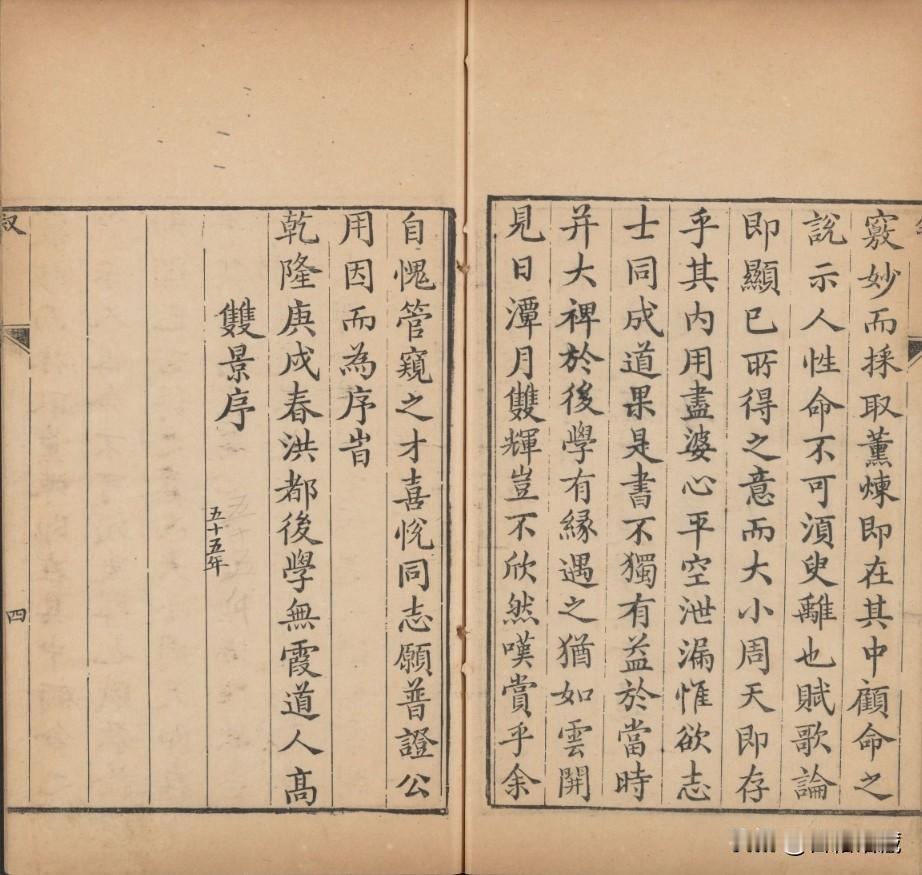 竅妙而採取薰煉即在其中顧命之
說示人性命不可須臾離也賦歌論
即顯已所得之意而大小周天即存
乎其内用盡婆心平空泄漏惟欲志
士同成道果是書不獨有益於當時
并大裨於後學有緣遇之猶如雲開
見日潭月雙輝豈不欣然嘆賞乎余
自愧管窺之才喜悅同志願普證公
用因而為序旹
乾隆庚戌春洪都後學無霞道人高
雙景序
五十五年
四